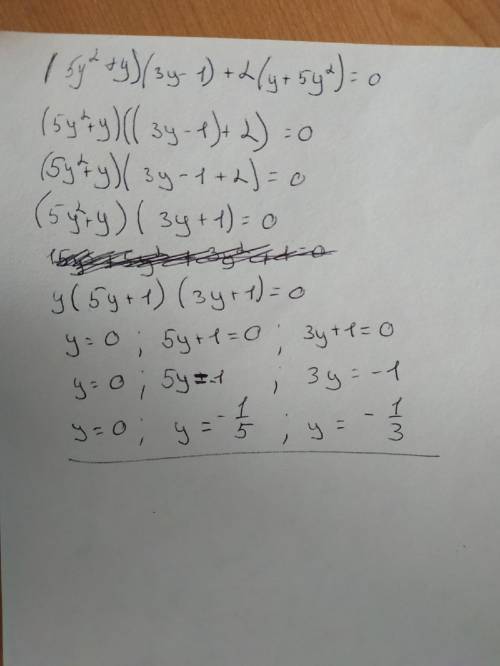 (5y²+y)(3y-1)+2(y+5y²)=0
(5y²+y)((3y-1)+2)=0
(5y²+y)(3y-1+2)=0
(5y²+y)(3y+1)=0
y(5y+1)(3y+1)=0
y=0; 5y+1=0; 3y+1=0
y=0; 5y=-1; 3y=-1
y=0; y=-1/5; y=-1/3